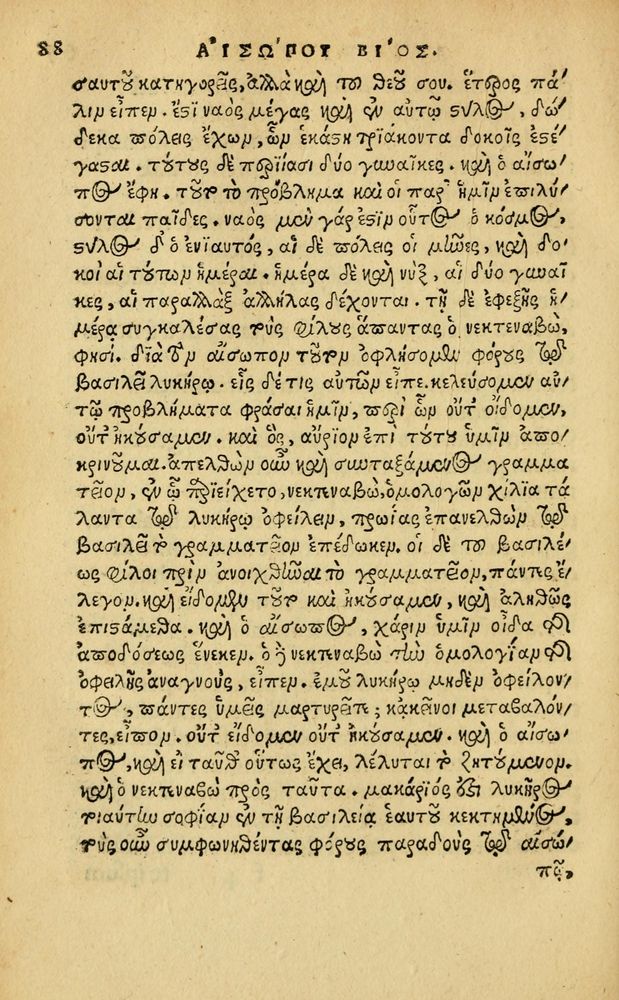 88 ΑἸΣΏΠΟΥ ΒΊΟΣ.
σαυτοῦ κατηγορεῖς, ἀλλὰ καὶ τοῦ θεοῦ σου. ἕτερος πά/
λιν εἶπεν. ἔστι ναὸς μέγας καὶ ἐν αὐτῷ στύλος, δώ/
δεκα πόλεις ἔχων, ὧν ἑκάστη τριάκοντα δοκοῖς ἐστέ/
γασται. τούτους δὲ περιΐασι δύο γυναῖκες. καὶ ὁ αἴσω/
πος ἔφη. τοῦτο τὸ πρόβλημα καὶ οἱ παρ' ἡμῖν ἐπιλύ/
σονται παῖδες. ναὸς μὲν γάρ ἐστιν οὗτος ὁ κόσμος,
στύλος δ' ὁ ἐνιαυτός, αἱ δὲ πόλεις οἱ μῆνες, καὶ δο/
κοὶ αἱ τούτων ἡμέραι. ἡμέρα δὲ καὶ νὺξ, αἱ δύο γυναῖ/
κες, αἳ παραλλὰξ ἀλλήλας δέχονται. τῇ δὲ ἐφεξῆς ἡ/
μέρα συγκαλέσας τοὺς φίλους ἅπαντας ὁ νεκτεναβὼ,
φησί. διὰ τὸν αἴσωπον τοῦτον ὀφλήσομεν φόρους τῷ
βασιλεῖ λυκήρῳ. εἷς δέ τις αὐτῶν εἶπε. κελεύσομεν αὐ/
τῷ προβλήματα φράσαι ἡμῖν, περὶ ὧν οὔτ' οἴδομεν,
οὔτ' ἠκούσαμεν. καὶ ὃς, αὔριον ἐπὶ τούτου ὑμῖν ἀπο/
κρινοῦμαι. ἀπελθὼν οὖν καὶ συνταξάμενος γραμμα
τεῖον, ἐν ᾧ περιείχετο, νεκτεναβὼ, ὁμολογῶν χίλια τά
λαντα τῷ λυκήρῳ ὀφείλειν, πρωίας ἐπανελθὼν τῷ
βασιλεῖ τὸ γραμματεῖον ἐπέδωκεν. οἱ δὲ τοῦ βασιλέ/
ως φίλοι πρὶν ἀνοιχθῆναι τὸ γραμματεῖον, πάντες ἔ/
λεγον. καὶ εἴδομεν τοῦτο καὶ ἠκούσαμεν, καὶ ἀληθῶς
ἐπιστάμεθα. καὶ ὁ αἴσωπος, χάριν ὑμῖν οἶδα τῆς
ἀποδόσεως ἕνεκεν. ὁ δὲ νεκτεναβὼ τὴν ὁμολογίαν τῆς
ὀφειλῆς ἀναγνοὺς, εἶπεν. ἐμοῦ λυκήρῳ μηδὲν ὀφείλον/
τος, πάντες ὑμεῖς μαρτυρεῖτε; κἀκεῖνοι μεταβαλόν/
τες, εἶπον. οὔτ' εἴδομεν οὔτ' ἠκούσαμεν. καὶ ὁ αἴσω/
πος, καὶ εἰ ταῦθ' οὕτως ἔχει, λέλυται τὸ ζητούμενον.
καὶ ὁ νεκτεναβὼ πρὸς ταῦτα. μακάριός ἐστι λυκῆρος
τοιαύτην σοφίαν ἐν τῇ βασιλείᾳ ἑαυτοῦ κεκτημένος,
τοὺς οὖν συμφωνηθέντας φόρους παραδοὺς τῷ αἰσώ/
πῳ,